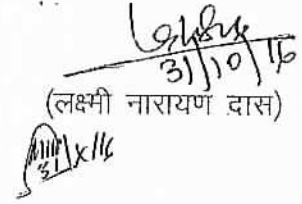 31/10/16
(लक्ष्मी नारायण दास)
31/x/16